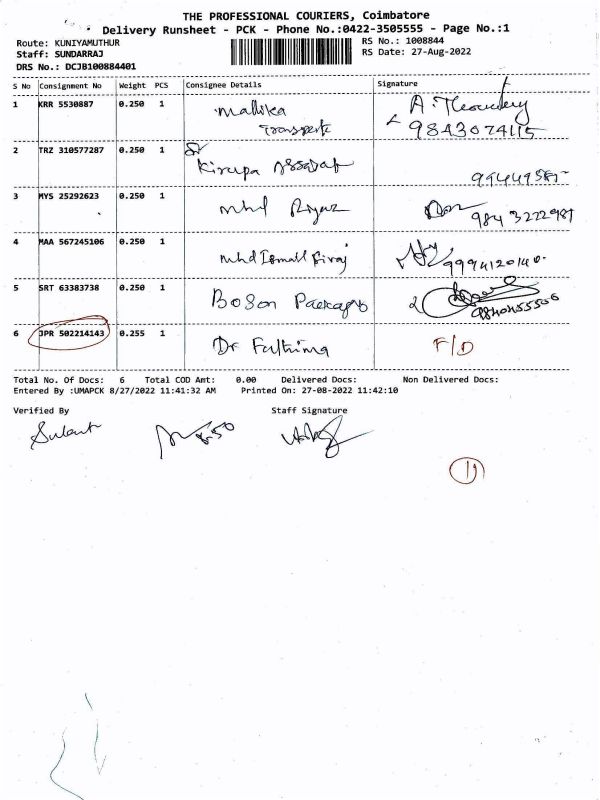 THE PROFESSIONAL COURIERS, Coimbatore
Delivery Runsheet - PCK - Phone No.:0422-3505555 - Page No.:1
Route: KUNIYAMUTHUR RS No.: 1008844
Staff: SUNDARRAJ RS Date: 27-Aug-2022
DRS No.: DCJB100884401
S No Consignment No Weight PCS Consignee Details Signature
1 KRR 5530887 0.250 1 Mallika
Transports 9843074115
2 TRZ 310577287 0.250 1 Kirupa
3 MYS 25292623 0.250 1 Mhd Riyaz 9843222981
4 MAA 567245106 0.250 1 Mhd Ismail Siraj 9994120140
5 SRT 63383738 0.250 1 Boson
6 JPR 502214143 0.255 1 Dr Fathima F/D
Total No. Of Docs: 6 Total COD Amt: 0.00 Delivered Docs: Non Delivered Docs:
Entered By :UMAPCK 8/27/2022 11:41:32 AM Printed On: 27-08-2022 11:42:10
Verified By Staff Signature